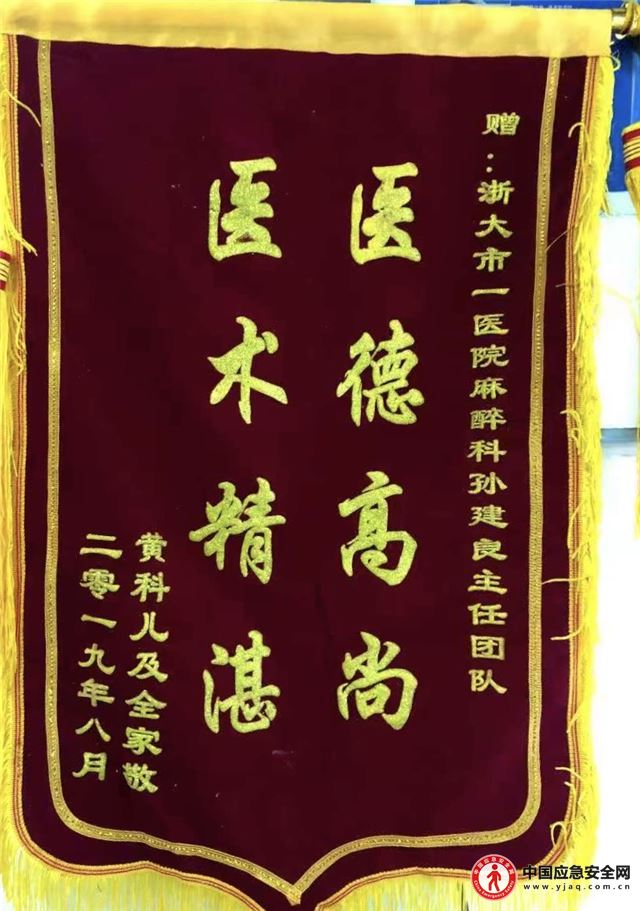 赠:浙大市一医院麻醉科孙建良主任团队
医德高尚
医术精湛
黄科儿及全家敬
二零一九年八月
中国应急安全网
www.yjaq.com.cn